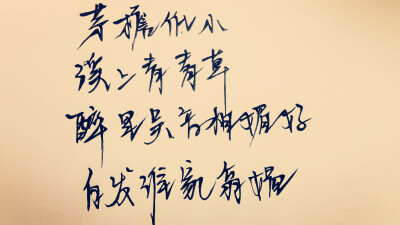 茅檐低小
溪上青青草
醉里吴音相媚好
白发谁家翁媪